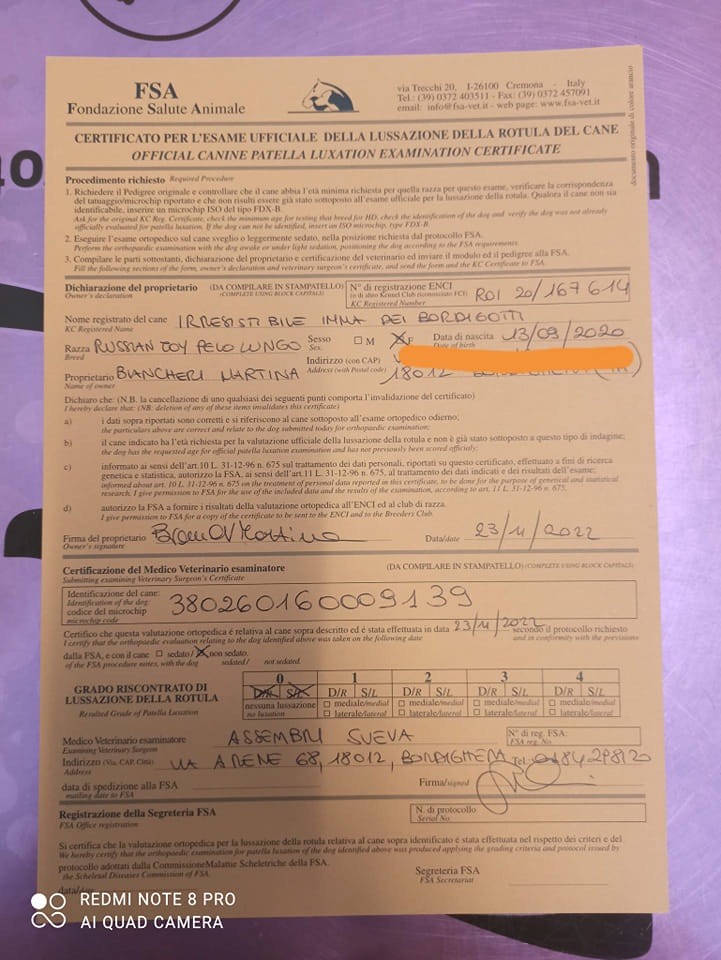 FSA
Fondazione Salute Animale
via Trecchi 20, I-26100 Cremona - Italy
Tel.: (39) 0372 403511 - Fax: (39) 0372 457091
email: info@fsa-vet.it - web page: www.fsa-vet.it
documento originale di colore arancio
CERTIFICATO PER L'ESAME UFFICIALE DELLA LUSSAZIONE DELLA ROTULA DEL CANE
OFFICIAL CANINE PATELLA LUXATION EXAMINATION CERTIFICATE
Procedimento richiesto Required Procedure
1. Richiedere il Pedigree originale e controllare che il cane abbia l'età minima richiesta per quella razza per questo esame, verificare la corrispondenza
del tatuaggio/microchip riportato e che non risulti essere già stato sottoposto all'esame ufficiale per la lussazione della rotula. Qualora il cane non sia
identificabile, inserire un microchip ISO del tipo FDX-B.
Ask for the original KC Reg. Certificate, check the minimum age for testing that breed for HD, check the identification of the dog and verify the dog was not already
officially evaluated for patella luxation. If the dog can not be identified, insert an ISO microchip, type FDX-B.
2. Eseguire l'esame ortopedico sul cane sveglio o leggermente sedato, nella posizione richiesta dal protocollo FSA.
Perform the orthopaedic examination with the dog awake or under light sedation, positioning the dog according to the FSA requirements.
3. Compilare le parti sottostanti, dichiarazione del proprietario e certificazione del veterinario ed inviare il modulo ed il pedigree alla FSA.
Fill the following sections of the form, owner's declaration and veterinary surgeon's certificate, and send the form and the KC Certificate to FSA.
Dichiarazione del proprietario (DA COMPILARE IN STAMPATELLO)
Owner's declaration (COMPLETE USING BLOCK CAPITALS)
N° di registrazione ENCI
(o di altro Kennel Club riconosciuto FCI)
KC Registered Number
ROI 20/167614
Nome registrato del cane IRRESISTIBILE IMMA DEI BORDIGOTTI
KC Registered Name
Razza RUSSIAN TOY PELO LUNGO Sesso M F Data di nascita 13/09/2020
Breed Sex Date of birth
Indirizzo (con CAP)
Proprietario BIANCHERI MARTINA Address (with Postal code) 18012
Name of owner
Dichiaro che: (N.B. la cancellazione di uno qualsiasi dei seguenti punti comporta l'invalidazione del certificato)
I hereby declare that: (NB: deletion of any of these items invalidates this certificate)
a) i dati sopra riportati sono corretti e si riferiscono al cane sottoposto all'esame ortopedico odierno;
the particulars above are correct and relate to the dog submitted today for orthopaedic examination;
b) il cane indicato ha l'età richiesta per la valutazione ufficiale della lussazione della rotula e non è già stato sottoposto a questo tipo di indagine;
the dog has the requested age for official patella luxation examination and has not previously been scored officially;
c) informato ai sensi dell'art.10 L. 31-12-96 n. 675 sul trattamento dei dati personali, riportati su questo certificato, effettuato a fini di ricerca
genetica e statistica, autorizzo la FSA, ai sensi dell'art.11 L. 31-12-96 n. 675, al trattamento dei dati indicati e dei risultati dell'esame;
informed about art. 10 L. 31-12-96 n. 675 on the treatment of personal data reported in this certificate, to be done for the purpose of genetical and statistical
research. I give permission to FSA for the use of the included data and the results of the examination, according to art. 11 L. 31-12-96 n. 675.
d) autorizzo la FSA a fornire i risultati della valutazione ortopedica all'ENCI ed al club di razza.
I give permission to FSA for a copy of the certificate to be sent to the ENCI and to the Breeders Club.
Firma del proprietario Data/date 23/11/2022
Owner's signature
Certificazione del Medico Veterinario esaminatore (DA COMPILARE IN STAMPATELLO) (COMPLETE USING BLOCK CAPITALS)
Submitting examining Veterinary Surgeon's Certificate
Identificazione del cane:
Identification of the dog:
codice del microchip
microchip code
380260160009139
Certifico che questa valutazione ortopedica é relativa al cane sopra descritto ed é stata effettuata in data 23/11/2022 secondo il protocollo richiesto
I certify that the orthopaedic evaluation relating to the dog identified above was taken on the following date and in conformity with the previsions
dalla FSA, e con il cane sedato / non sedato.
of the FSA procedure notes, with the dog sedated / not sedated.
GRADO RISCONTRATO DI
LUSSAZIONE DELLA ROTULA
Resulted Grade of Patella Luxation
0 1 2 3 4
D/R S/L D/R S/L D/R S/L D/R S/L D/R S/L
nessuna lussazione mediale/medial mediale/medial mediale/medial mediale/medial
no luxation laterale/lateral laterale/lateral laterale/lateral laterale/lateral
Medico Veterinario esaminatore ASSEMBRI SUEVA N° di reg. FSA:
Examining Veterinary Surgeon FSA reg. No.
Indirizzo (Via, CAP, Città) VIA ARENE 68, 18012, BORDIGHERA Tel. 0184 298120
Address
data di spedizione alla FSA Firma/signed
mailing date to FSA
Registrazione della Segreteria FSA N. di protocollo
FSA Office registration Serial No.
Si certifica che la valutazione ortopedica per la lussazione della rotula relativa al cane sopra identificato é stata effettuata nel rispetto dei criteri e del
We hereby certify that the orthopaedic examination for patella luxation of the dog identified above was produced applying the grading criteria and protocol issued by
protocollo adottati dalla CommissioneMalattie Scheletriche della FSA.
the Scheletal Diseases Commission of FSA.
Segreteria FSA
FSA Secretariat
data/date
REDMI NOTE 8 PRO
AI QUAD CAMERA